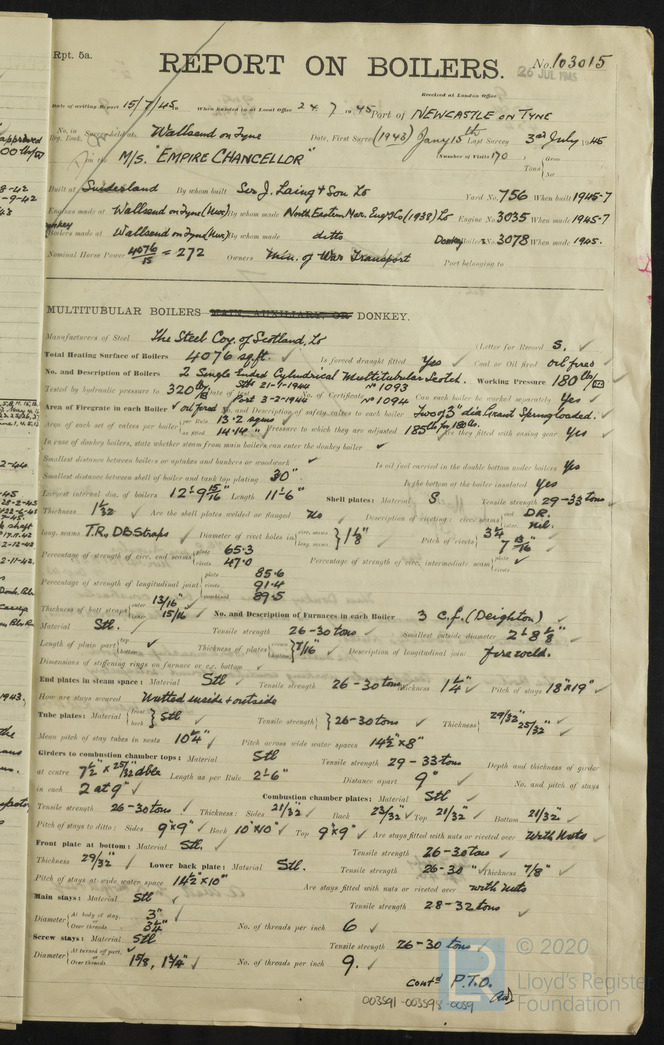 Rpt. 5a.
REPORT ON BOILERS.
No. 103015
26 JUL 1945
Received at London Office
Date of writing Report 15/7/45. When handed in at Local Office 24.7.1945 Port of NEWCASTLE ON TYNE
No. in Reg. Book. Survey held at Wallsend on Tyne Date, First Survey (1943) Jany 15th Last Survey 3rd July 1945
on the M/S. "EMPIRE CHANCELLOR" (Number of Visits 170) Gross
Tons Net
Built at Sunderland By whom built Sir J. Laing & Son Ld Yard No. 756 When built 1945-7
Engines made at Wallsend on Tyne By whom made North Eastern Mar. Eng. Co (1938) Ld Engine No. 3035 When made 1945-7
Donkey Boilers made at Wallsend on Tyne By whom made ditto Donkey Boiler No. 3078 When made 1945.
Nominal Horse Power 4076/15 = 272 Owners Min. of War Transport Port belonging to
MULTITUBULAR BOILERS MAIN, AUXILIARY, OR DONKEY.
Manufacturers of Steel The Steel Coy. of Scotland, Ld (Letter for Record S.
Total Heating Surface of Boilers 4076 sq.ft. Is forced draught fitted Yes Coal or Oil fired oil fired
No. and Description of Boilers 2 Single Ended Cylindrical Multitubular Scotch. Working Pressure 180 lb
Tested by hydraulic pressure to 320 lb Date of test Stbd 21-7-1944 Port 3-2-1944 No. of Certificate No 1093 No 1094 Can each boiler be worked separately Yes
Area of Firegrate in each Boiler oil fired No. and Description of safety valves to each boiler Two of 3" dia Grant Spring loaded.
Area of each set of valves per boiler per Rule 13.2 as fitted 14.14 Pressure to which they are adjusted 185 lb for 180 lb. Are they fitted with easing gear Yes
In case of donkey boilers, state whether steam from main boilers can enter the donkey boiler
Smallest distance between boilers or uptakes and bunkers or woodwork Is oil fuel carried in the double bottom under boilers Yes
Smallest distance between shell of boiler and tank top plating 30" Is the bottom of the boiler insulated Yes
Largest internal dia. of boilers 12'-9 15/16" Length 11'-6" Shell plates: Material S Tensile strength 29-33 tons
Thickness 1 1/32 Are the shell plates welded or flanged No Description of riveting: circ. seams end DR. inter. Nil.
long. seams T.R. DB Straps Diameter of rivet holes in circ. seams long. seams 1 1/8" Pitch of rivets 3 1/4 7 13/16"
Percentage of strength of circ. end seams plate 65.3 rivets 47.0 Percentage of strength of circ. intermediate seam plate rivets
Percentage of strength of longitudinal joint plate 85.6 rivets 91.4 combined 89.5
Thickness of butt straps outer 13/16" inner 15/16 No. and Description of Furnaces in each Boiler 3 C.f. (Deighton)
Material Stl. Tensile strength 26-30 tons Smallest outside diameter 2'-8 1/8"
Length of plain part top bottom Thickness of plates crown bottom 7/16 Description of longitudinal joint fire weld.
Dimensions of stiffening rings on furnace or c.c. bottom
End plates in steam space: Material Stl Tensile strength 26-30 tons Thickness 1 1/4" Pitch of stays 18"x19"
How are stays secured Nutted inside & outside
Tube plates: Material front back Stl Tensile strength 26-30 tons Thickness 29/32" 25/32"
Mean pitch of stay tubes in nests 10 1/4" Pitch across wide water spaces 14 1/2 x 8"
Girders to combustion chamber tops: Material Stl Tensile strength 29-33 tons Depth and thickness of girder
at centre 7 1/2" x 25/32 dble Length as per Rule 2'-6" Distance apart 9" No. and pitch of stays
in each 2 at 9" Combustion chamber plates: Material Stl
Tensile strength 26-30 tons Thickness: Sides 21/32" Back 23/32" Top 21/32" Bottom 21/32"
Pitch of stays to ditto: Sides 9"x9" Back 10"x10" Top 9"x9" Are stays fitted with nuts or riveted over With Nuts
Front plate at bottom: Material Stl. Tensile strength 26-30 tons
Thickness 29/32" Lower back plate: Material Stl. Tensile strength 26-30 " Thickness 7/8"
Pitch of stays at wide water space 14 1/2 x 10" Are stays fitted with nuts or riveted over with nuts
Main stays: Material Stl Tensile strength 28-32 tons
Diameter At body of stay, 3" Over threads 3 1/4" No. of threads per inch 6
Screw stays: Material Stl Tensile strength 26-30 tons
Diameter At turned off part, Over threads 1 5/8, 1 3/4" No. of threads per inch 9.
Contd P.T.O.
003591-003598-0059
© 2020
LR
Lloyd's Register
Foundation